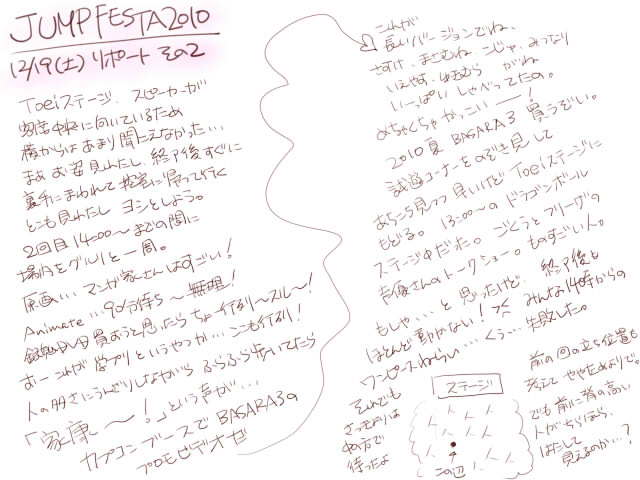 JUMP FESTA 2010
12/19(土) リポート その2
Toeiステージ、スピーカーが
客席中央に向いているため
横からはあまり聞こえなかった…
まぁ お姿見れたし、終了後すぐに
裏手にまわれて控室に帰って行く
とこも見れたし ヨシとしよう。
2回目 14:00〜までの間に
場内をグルリと一周。
原画… マンガ家さんはすごい!
Animate … 90分待ち〜 無理!
買おうと思ったら ちょー行列〜スルー!
おー これが 学プリというやつか… こっちも行列!
人の多さにうんざりしながら ふらふら歩いてたら
「家康〜!」という声が…
カプコンブースで BASARA3の
プロモビデオぜ
これが
長いバージョンでね、
さすけ、まさむね、こじゅ、みつなり
いえやす、ゆきむら がね
いーっぱい しゃべってたの。
めちゃくちゃかっこいいーー!
2010夏 BASARA3 買うぞい。
試遊コーナーをのぞき見して
あちこち見つつ 早いけど Toeiステージに
もどる。 13:00〜の ドラゴンボール
ステージ中だった。 ごくうとフリーザの
声優さんのトークショー。ものすごい人。
もしや… と 思ったけど、終了後も
ほとんど動かない! みんな14時からの
ワンピースねらい… くぅ… 失敗した。
それでも
さっきよりは
中の方で
待ったよ
ステージ
この辺
前の回の立ち位置も
考えて やや右よりで。
でも 前に 背の高い
人がちらほら、
はたして
見えるのか…?